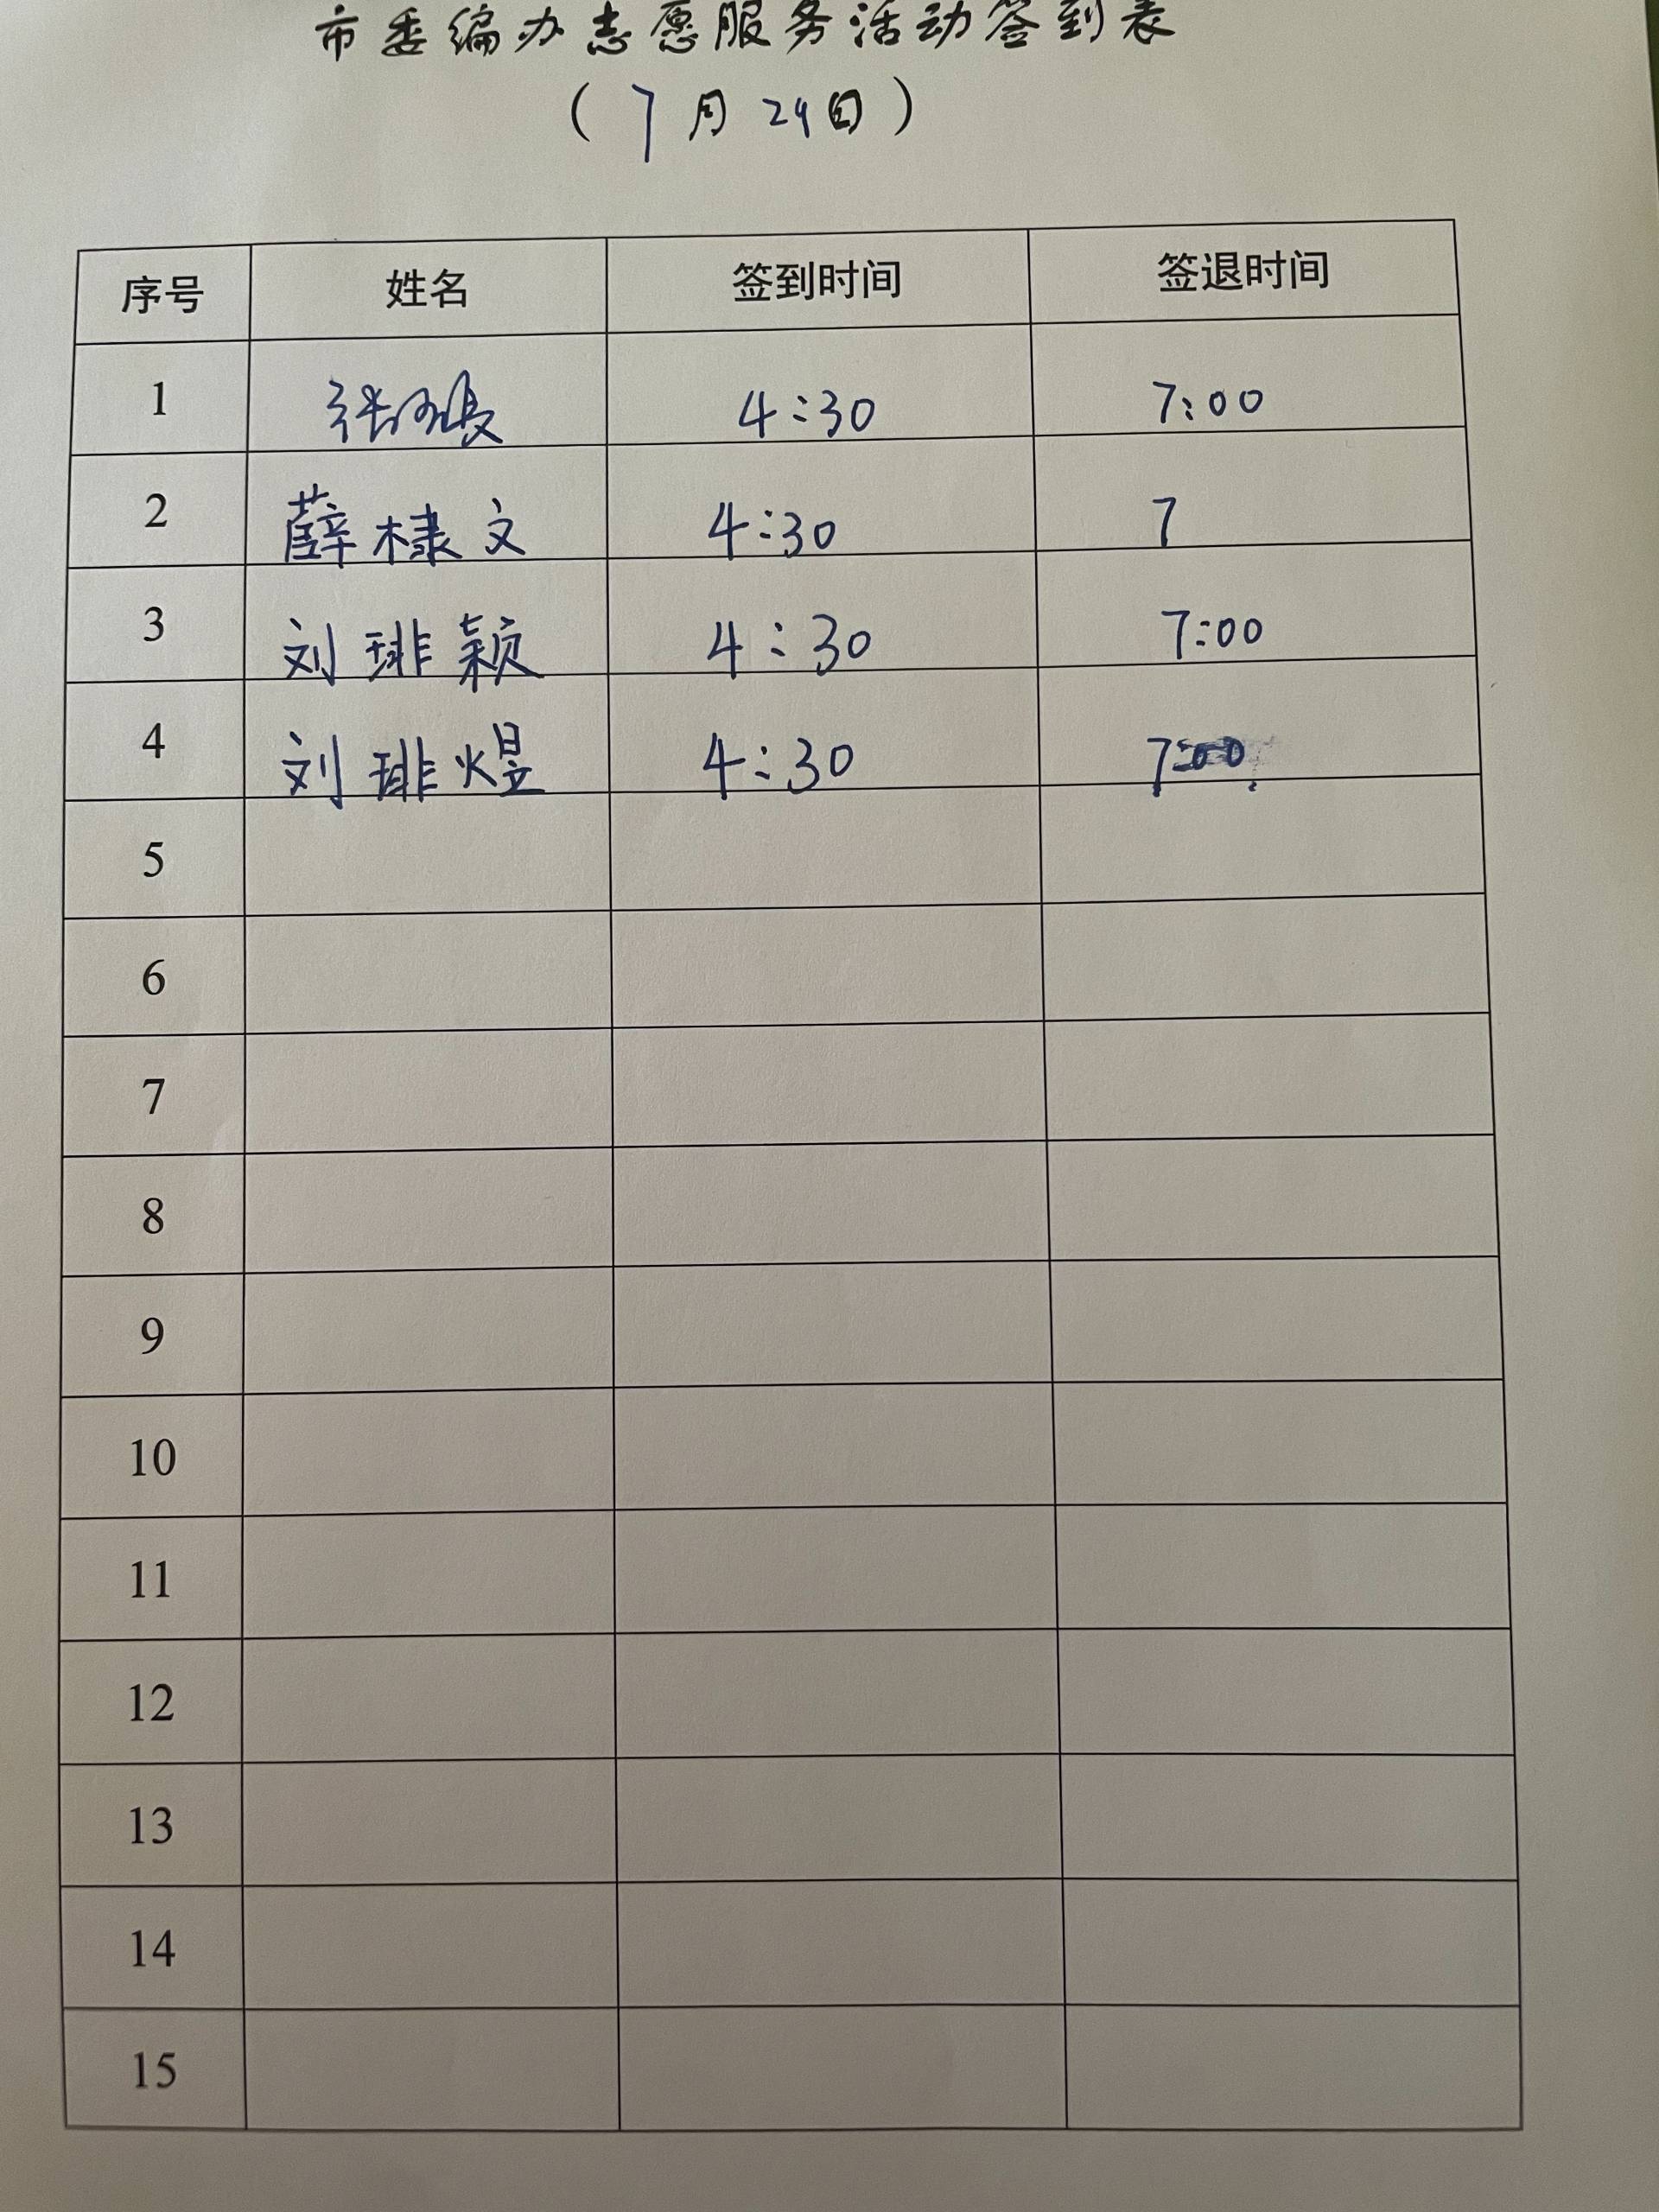 市委编办志愿服务活动签到表
（7月29日）
序号 姓名 签到时间 签退时间
1 张 4:30 7:00
2 薛棣文 4:30 7
3 刘琲颖 4:30 7:00
4 刘琲煜 4:30 7:00
5
6
7
8
9
10
11
12
13
14
15